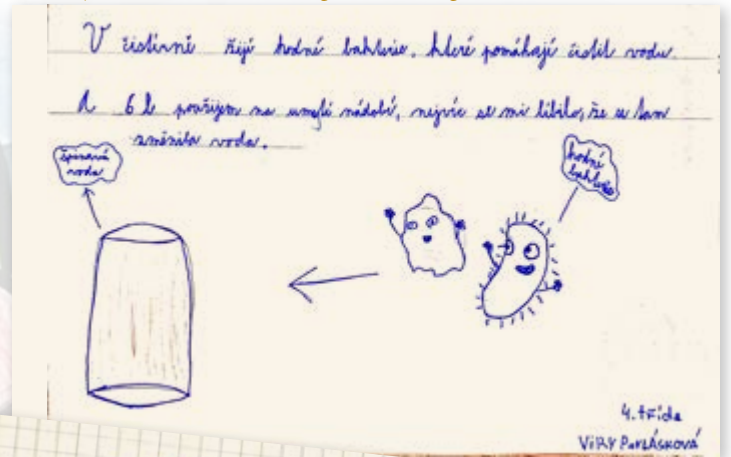 V čistírně žijí hodné bakterie, které pomáhají čistit vodu.
A 6 l použijem na umytí nádobí, nejvíc se mi líbilo, že se tam
změnila voda.
špinavá
voda
hodné
bakterie
4. třída